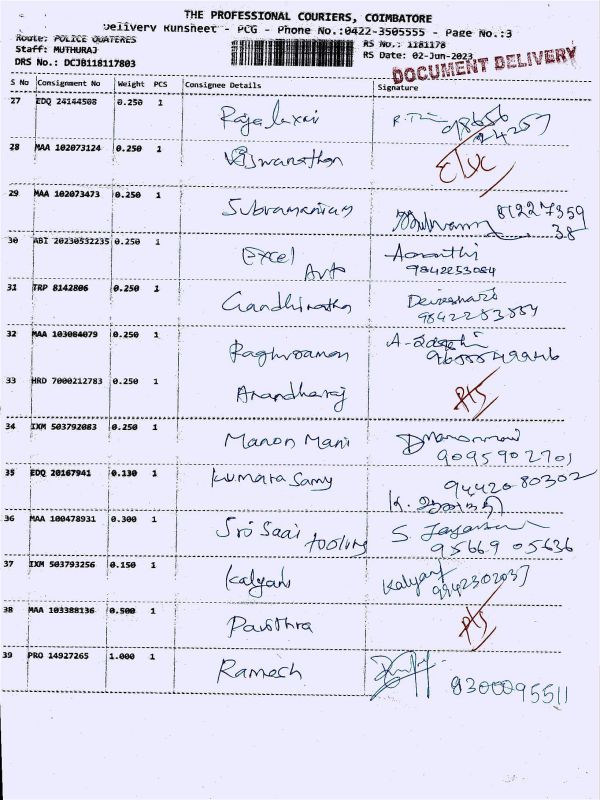 THE PROFESSIONAL COURIERS, COIMBATORE
Delivery Runsheet - PCG - Phone No.:0422-3505555 - Page No.:3
Route: POLICE QUATERES
RS No.: 1181178
Staff: MUTHURAJ
RS Date: 02-Jun-2023
DRS No.: DCJB118117803
DOCUMENT DELIVERY
S No Consignment No Weight PCS Consignee Details Signature
27 EDQ 24144508 0.250 1
28 MAA 102073124 0.250 1 Viswanathan
29 MAA 102073473 0.250 1 Subramaniam
30 ABI 20230532235 0.250 1 Excel Aarthi
Auto 9842253084
31 TRP 8142806 0.250 1
32 MAA 103084079 0.250 1
33 HRD 7000212783 0.250 1 Anandharaj
34 IXM 503792083 0.250 1 Manon Mani
9095902701
35 EDQ 20167941 0.130 1 Kumara Samy 9442080302
36 MAA 100478931 0.300 1 Sri Saai
tooling 95669 05636
37 IXM 503793256 0.150 1 Kalyan Kalyan
9842302037
38 MAA 103388136 0.500 1 Pavithra
39 PRO 14927265 1.000 1 Ramesh
9300095511